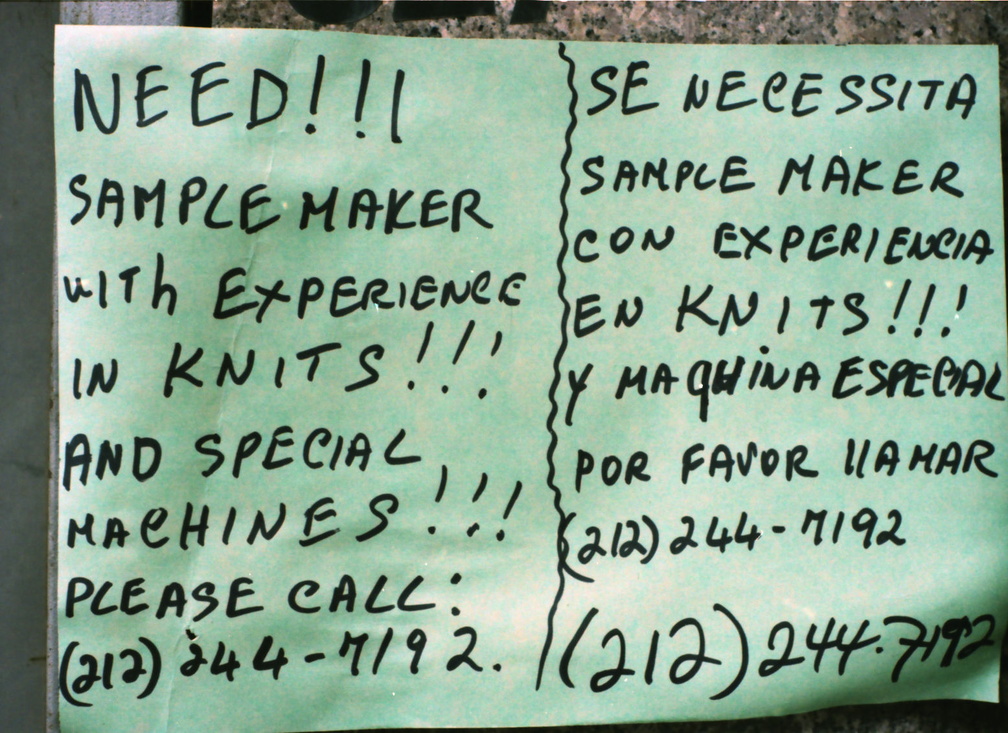 NEED!!!
SAMPLE MAKER
with EXPERIENCE
IN KNITS!!!
AND SPECIAL
MACHINES!!!
PLEASE CALL:
(212) 244-7192.
SE NECESSITA
SAMPLE MAKER
CON EXPERIENCIA
EN KNITS!!!
Y MAQHINA ESPECIAL
POR FAVOR llAMAR
(212) 244-7192
(212) 244-7192